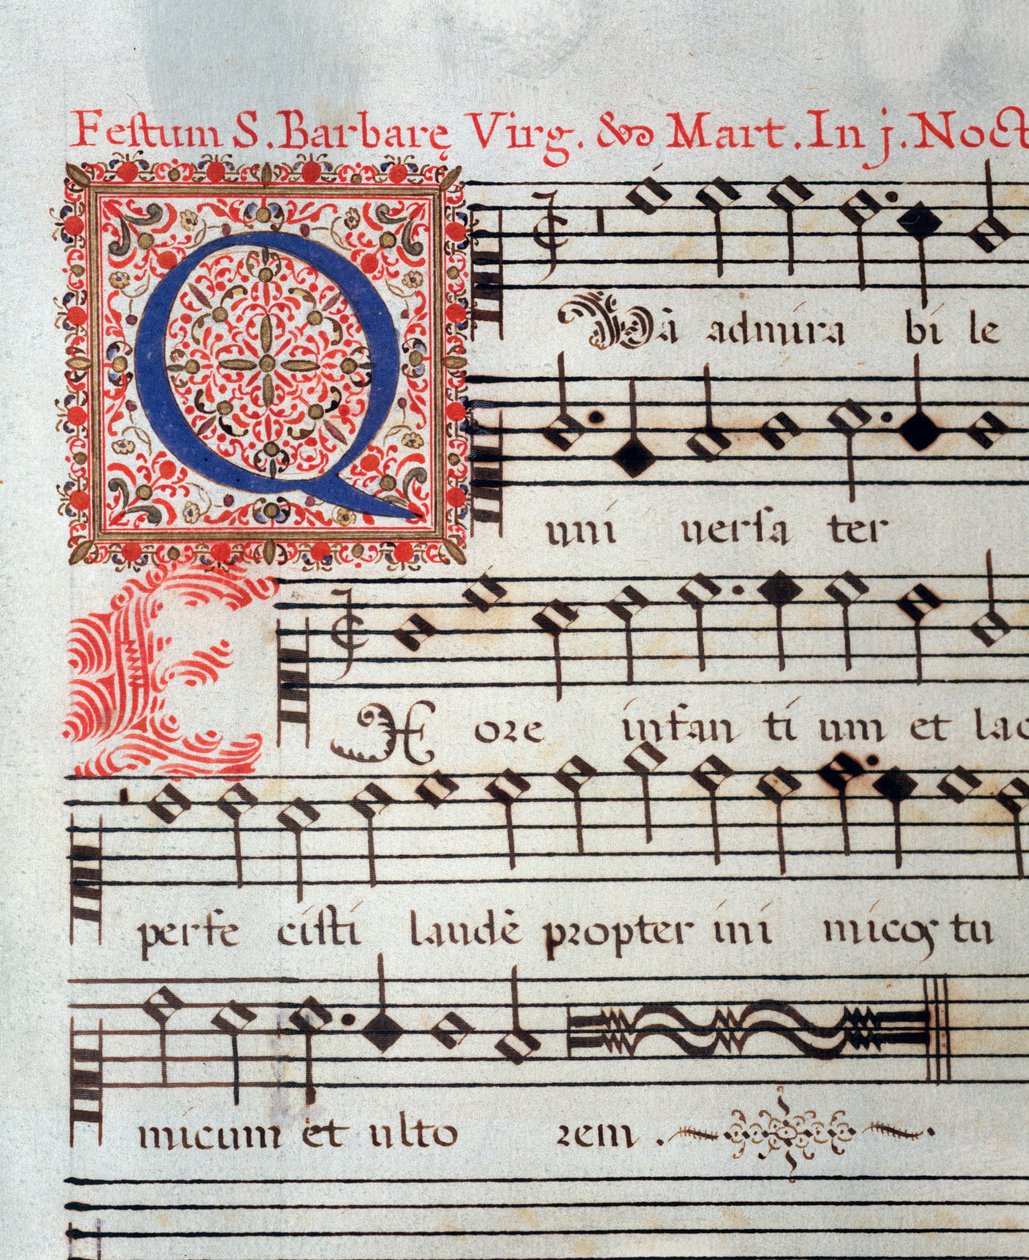 Festum S. Barbarę Virg. & Mart. In j. Noct
Q Vã admira bi le
uni versa ter
E X ore infan ti um et lac
perfe cisti laudẽ propter ini micos tu
micum et ulto rem.